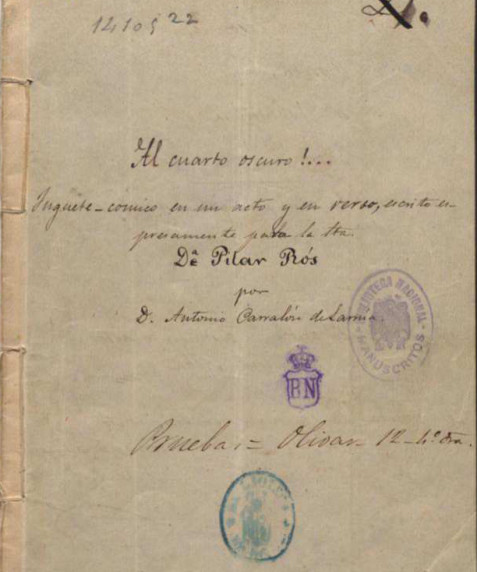 14105 22
Al cuarto oscuro!...
Juguete-comico en un acto y en verso, escrito es-
presamente para la Sra.
Dª Pilar Rós
por
D. Antonio Carralón de Larrua.
BIBLIOTECA NACIONAL
MANUSCRITOS
BN
Prueba.= Olivar- 12-4º dra.